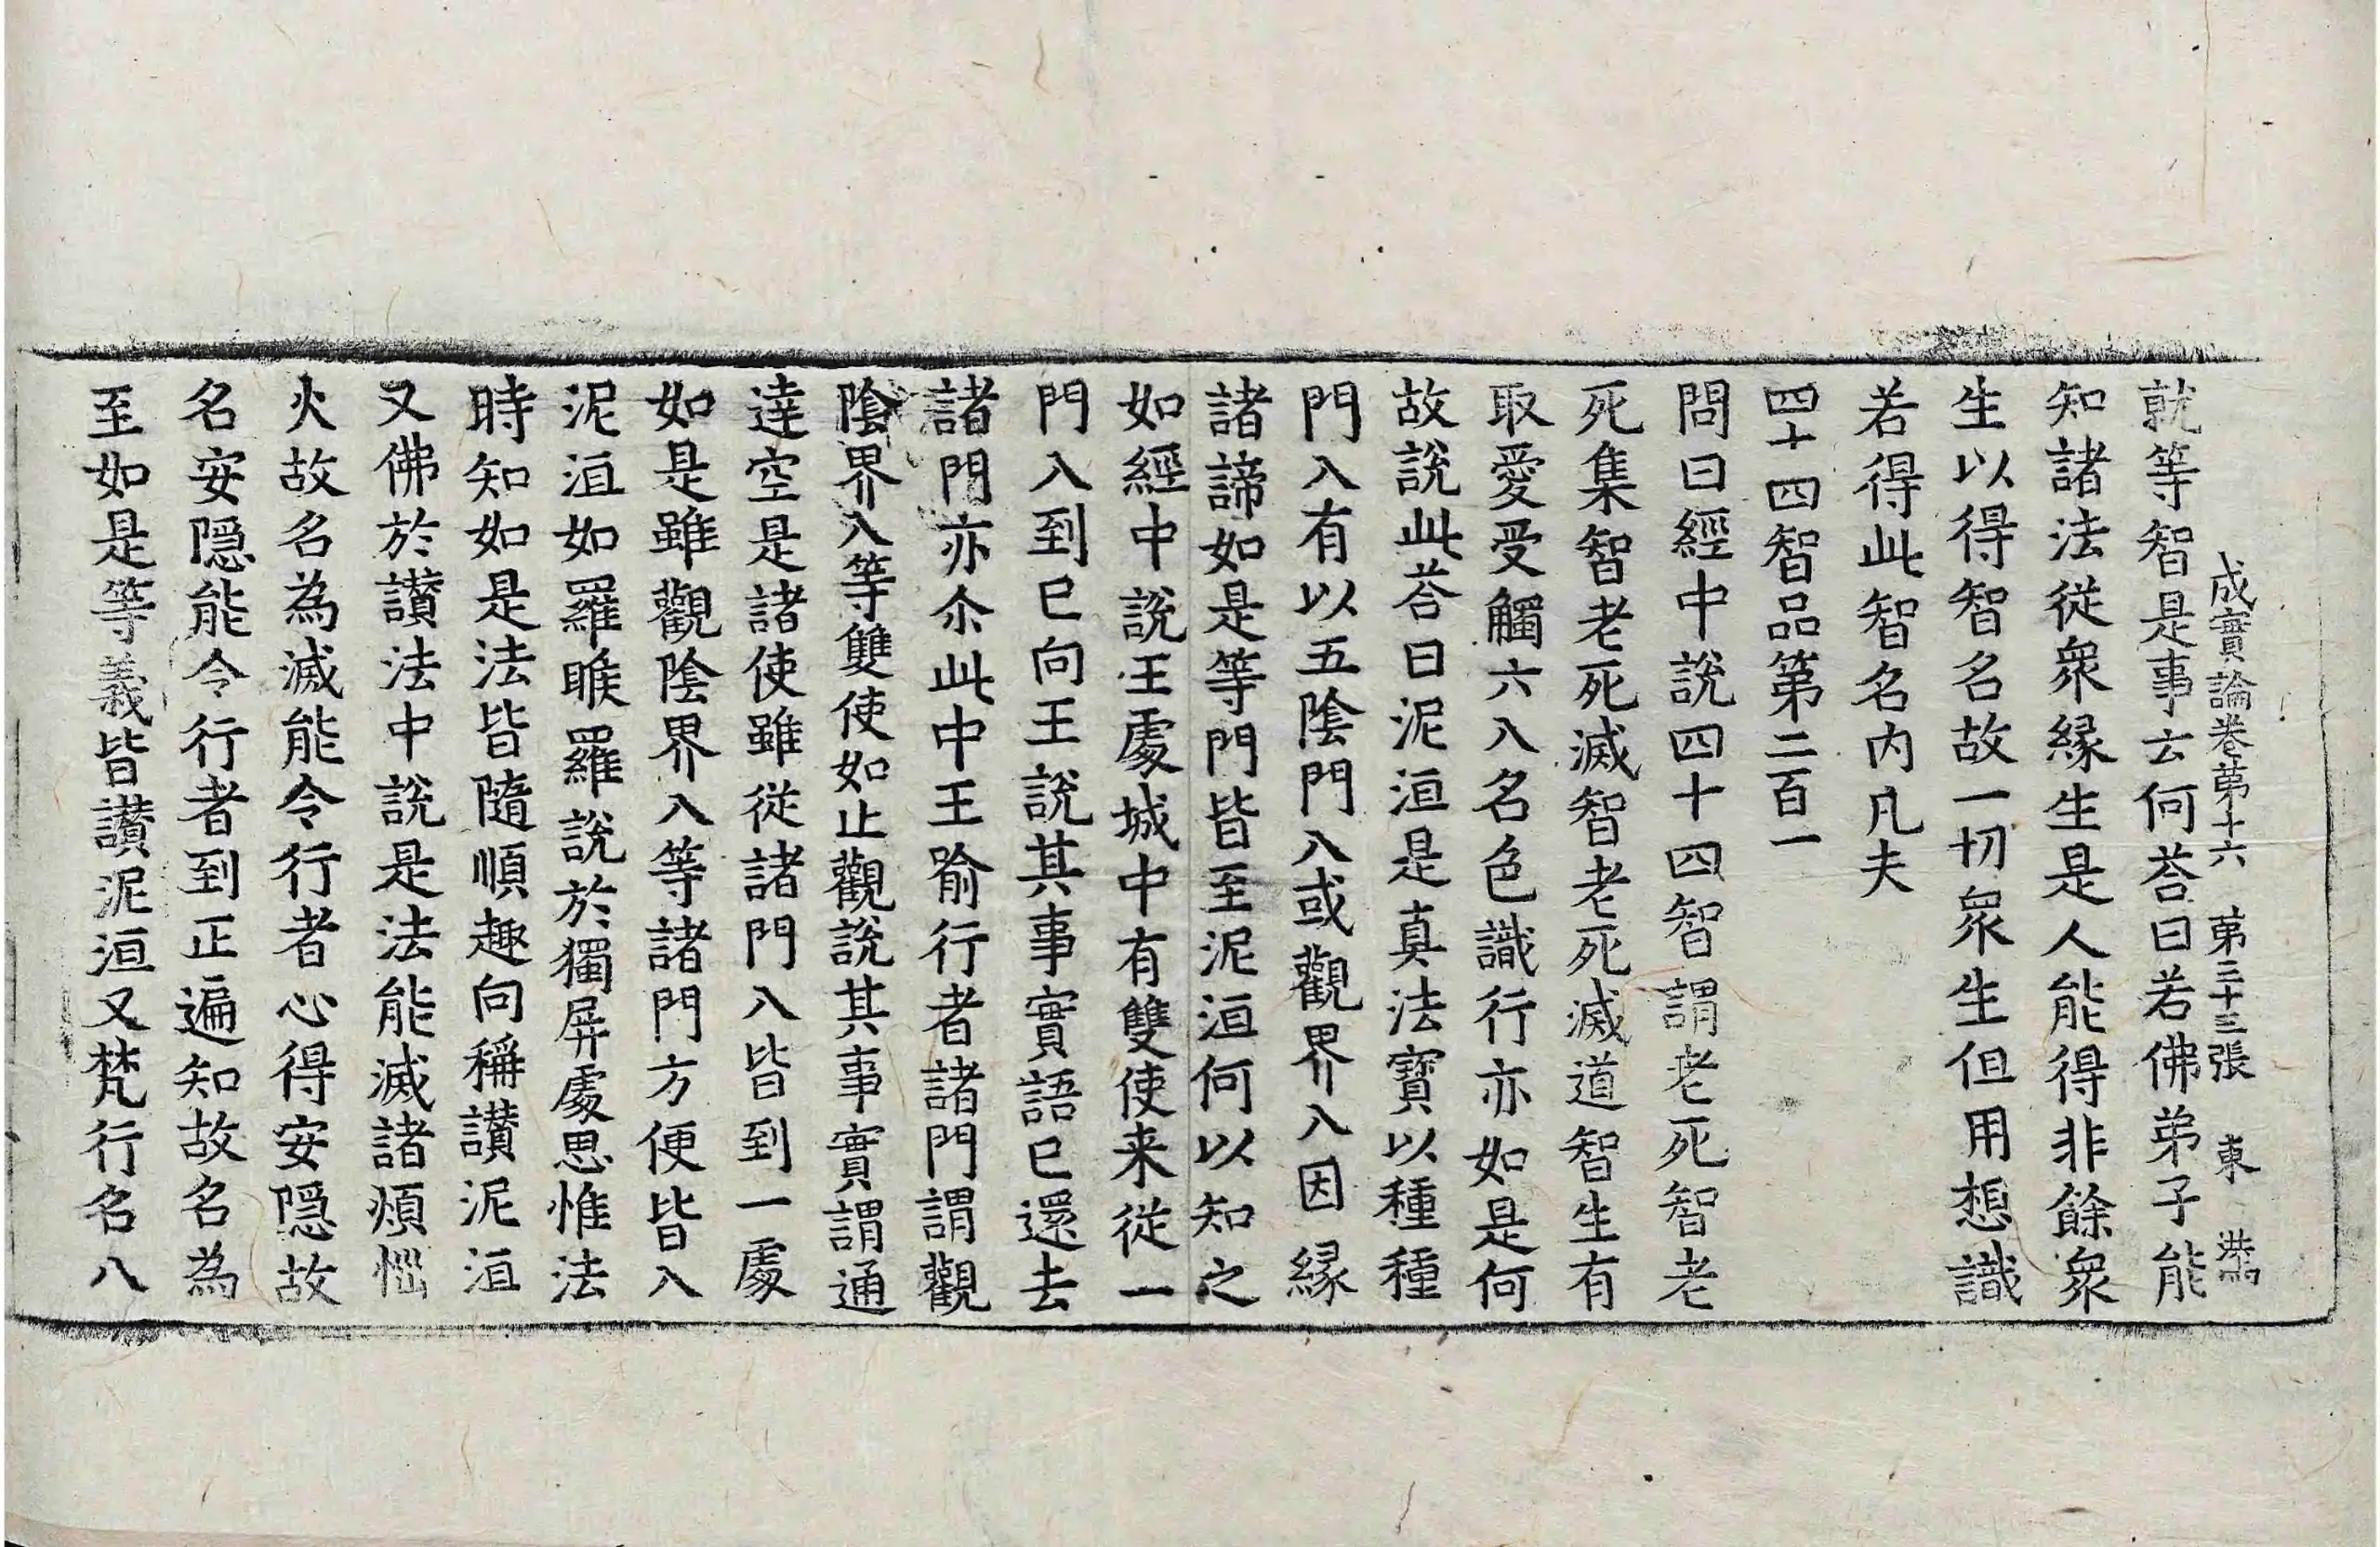 成實論卷苐十六 苐三十三張 東 
就等智是事云何荅曰若佛弟子能
知諸法從衆縁生是人能得非餘衆
生以得智名故一切衆生但用想識
若得此智名内凡夫
四十四智品第二百一
問曰經中說四十四智謂老死智老
死集智老死滅智老死滅道智生有
取愛受觸六入名色識行亦如是何
故說此荅曰泥洹是真法寳以種種
門入有以五陰門入或觀界入因縁
諸諦如是等門皆至泥洹何以知之
如經中說王處城中有雙使来從一
門入到已向王說其事實語已還去
諸門亦尒此中王喻行者諸門謂觀
陰界入等雙使如止觀說其事實謂通
達空是諸使雖從諸門入皆到一處
如是雖觀陰界入等諸門方便皆入
泥洹如羅睺羅說於獨屏處思惟法
時知如是法皆隨順趣向稱讃泥洹
又佛於讃法中說是法能滅諸煩惱
火故名為滅能令行者心得安隠故
名安隠能令行者到正遍知故名為
至如是等義皆讃泥洹又梵行名八